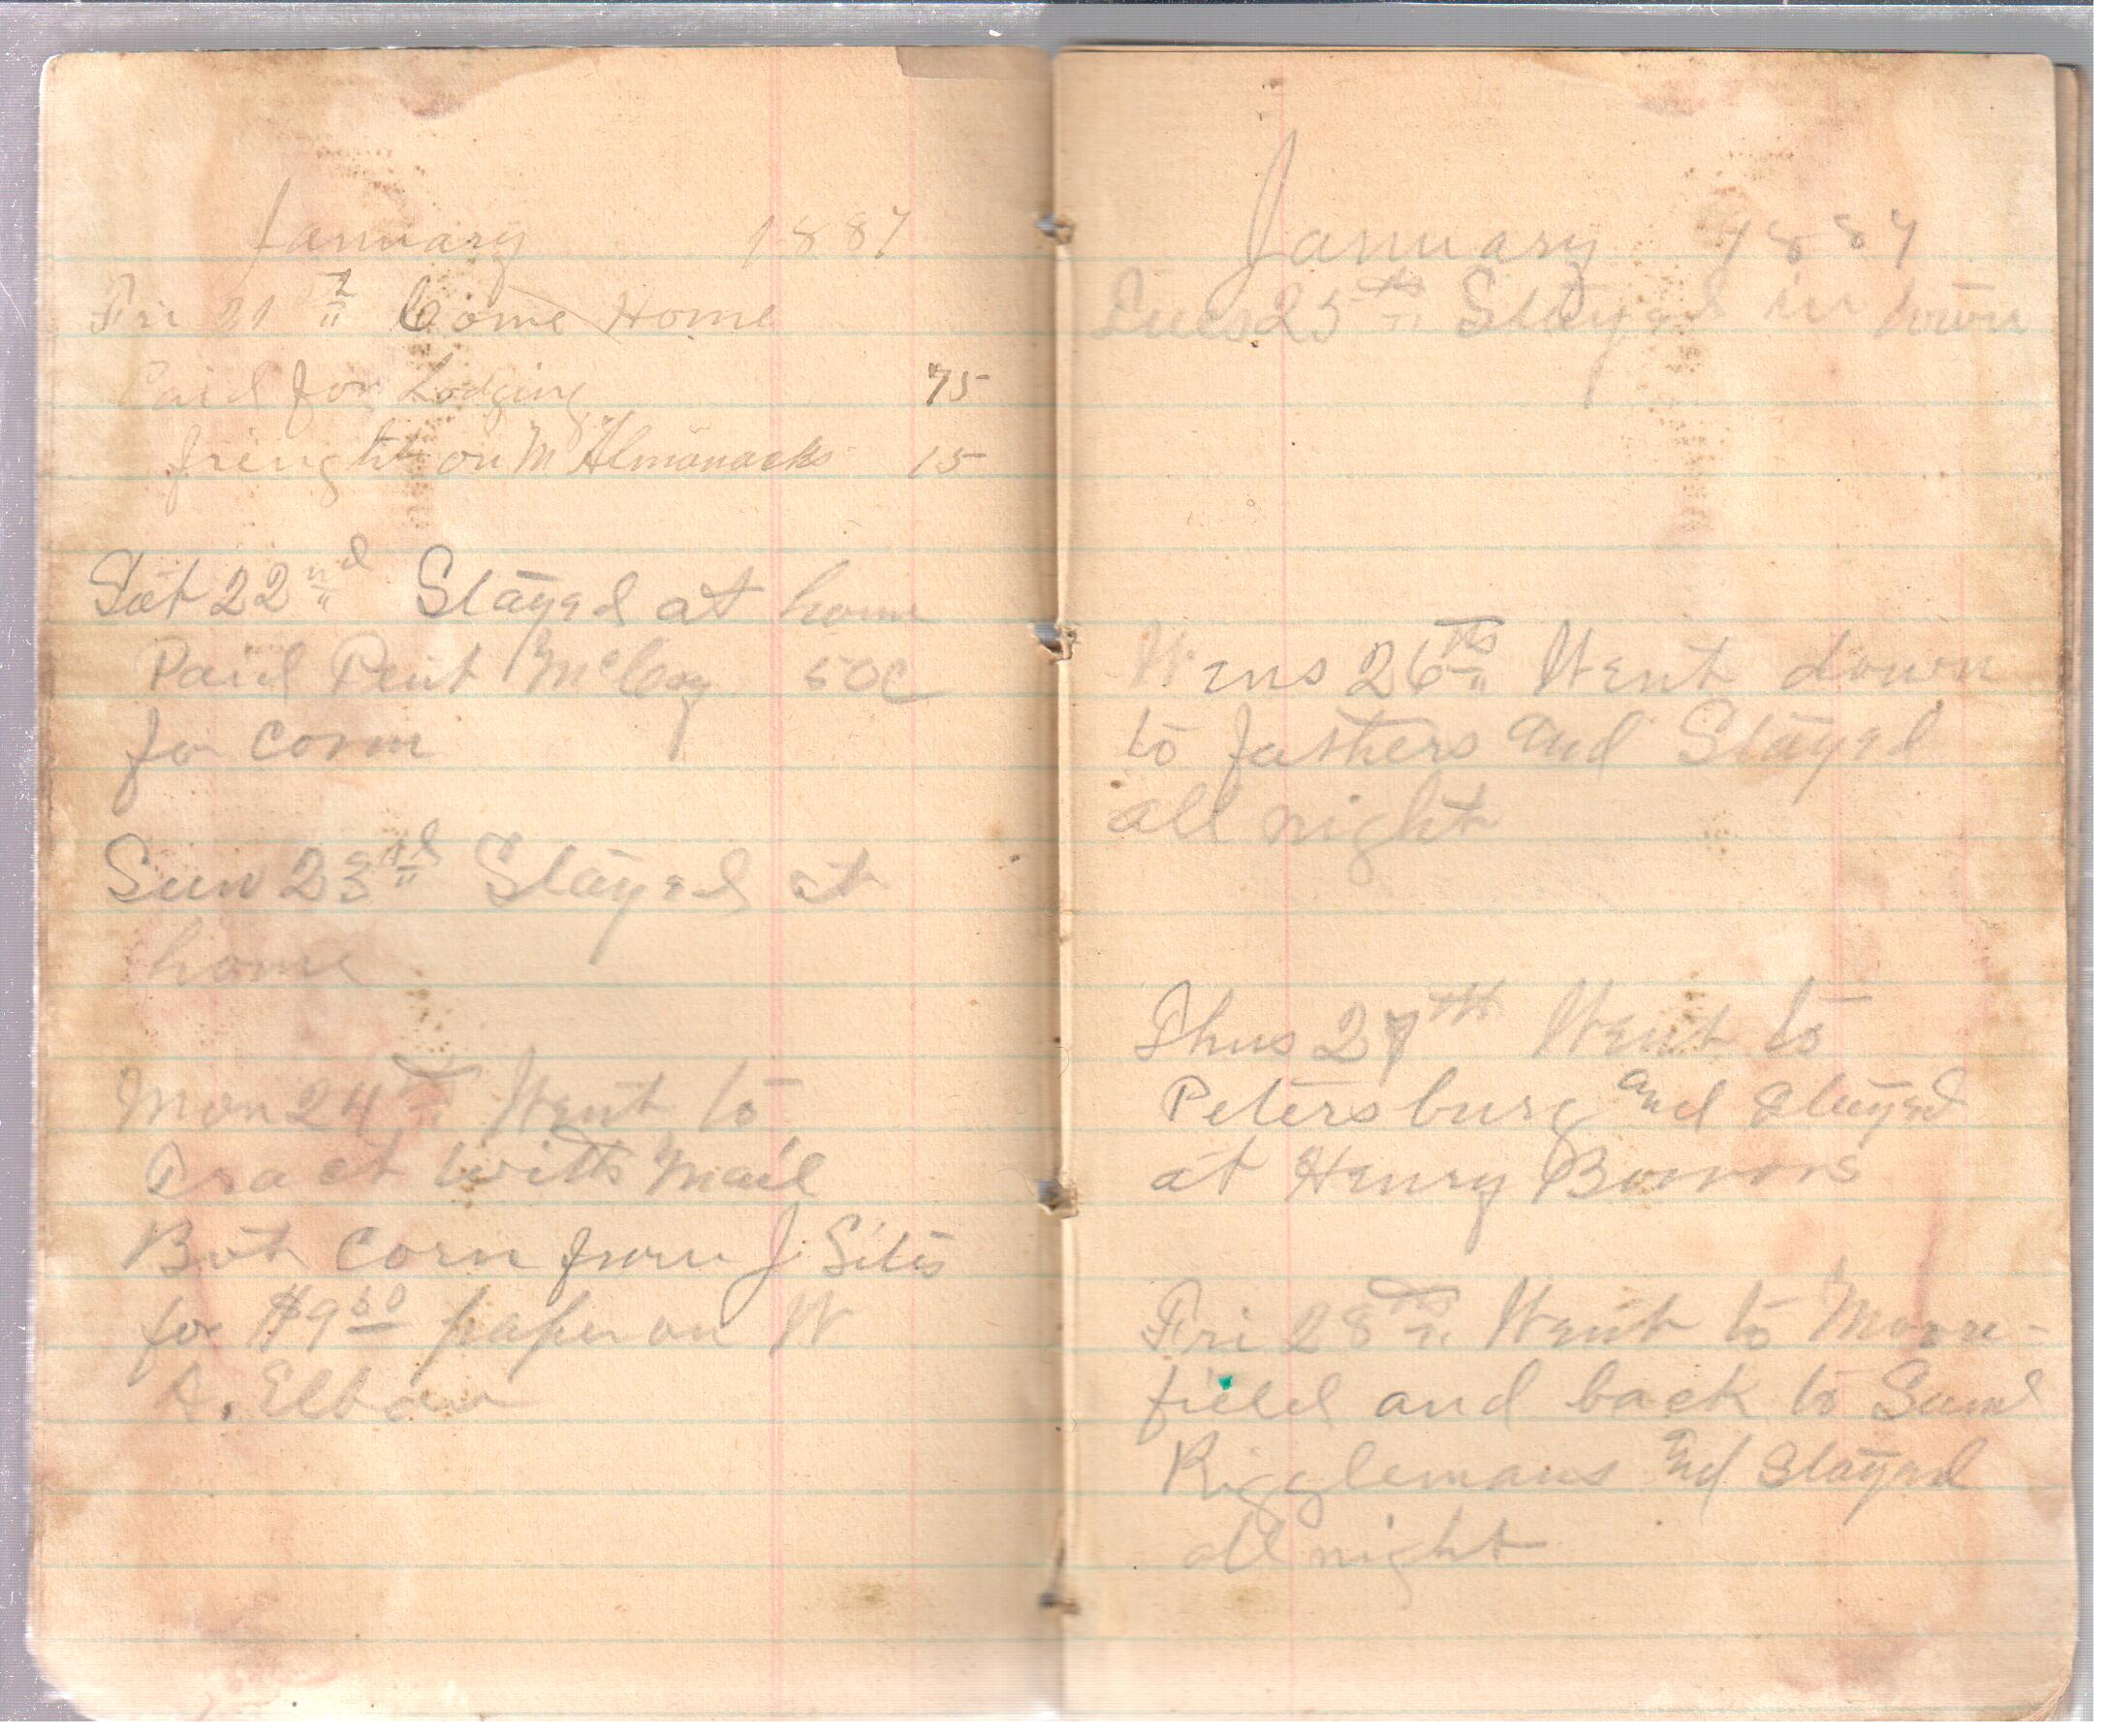 January 1887
Fri 21st Come Home
Paid for Lodging 75
freight on M Almanacks 15
Sat 22nd Stayed at home
Paid Pent McCoy 50c
for corn
Sun 23rd Stayed at
home
Mon 24th Went to
Tract with Mail
Bot Corn from J Sites
for $9.60 paper on W
A.
January 1887
Tues 25th Stayed in town
Wens 26th Went down
to fathers and Stayed
all night
Thus 27th Went to
Petersburg and Stayed
at Henry Bowers
Fri 28th Went to Moore-
field and back to Saml
Rigglemans and Stayed
all night